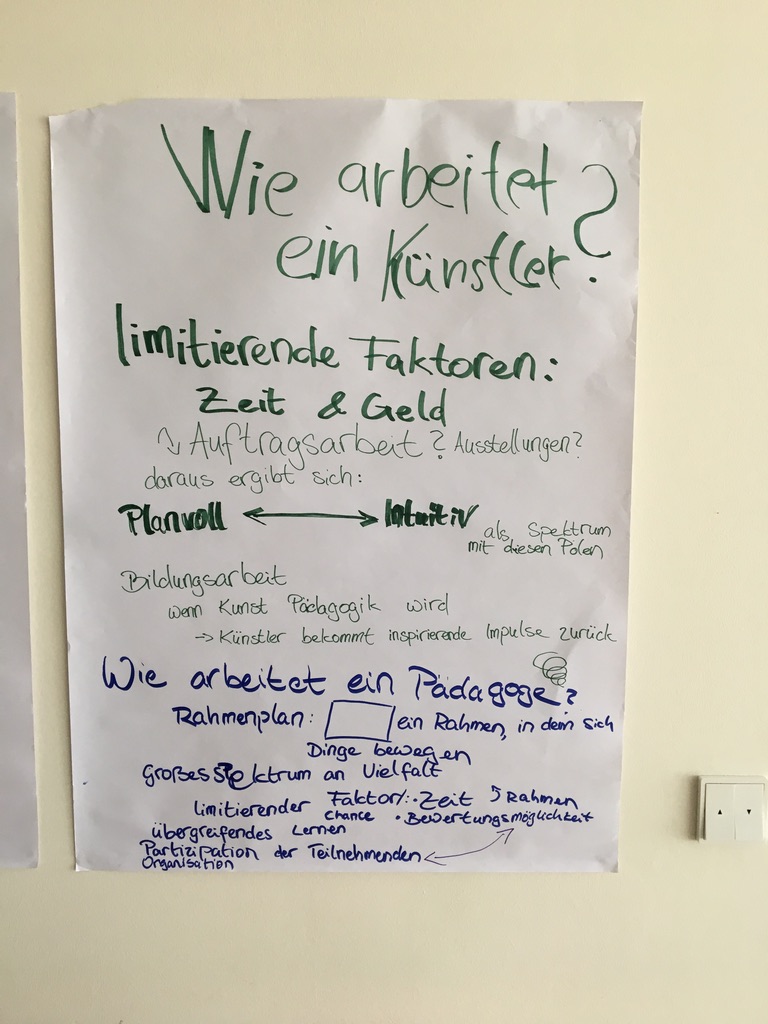 Wie arbeitet
ein Künstler?
limitierende Faktoren:
Zeit & Geld
Auftragsarbeit? Ausstellungen?
daraus ergibt sich:
Planvoll ↔ Intuitiv als Spektrum
mit diesen Polen
Bildungsarbeit
wenn Kunst Pädagogik wird
→ Künstler bekommt inspirierende Impulse zurück
Wie arbeitet ein Pädagoge?
Rahmenplan: ein Rahmen, in dem sich
Dinge bewegen
Großes Spektrum an Vielfalt
limitierender Faktor/: • Zeit Rahmen
chance • Bewertungsmöglichkeit
übergreifendes Lernen
Partizipation der Teilnehmenden
Organisation